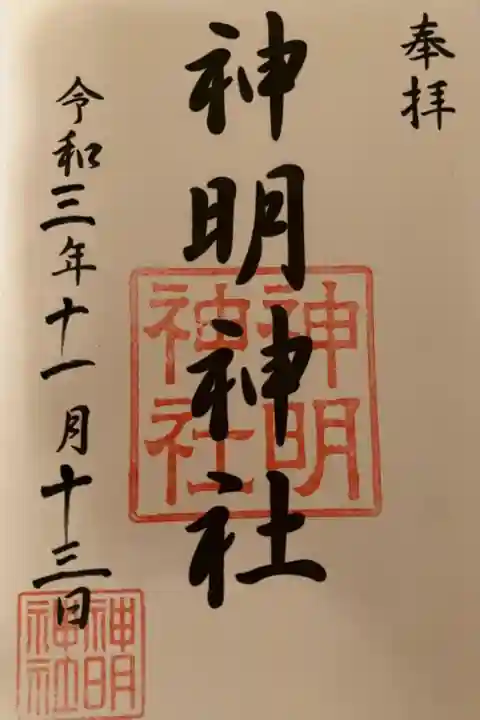 奉拝
神明神社
神明
神社
令和三年十一月十三日
神明
神社